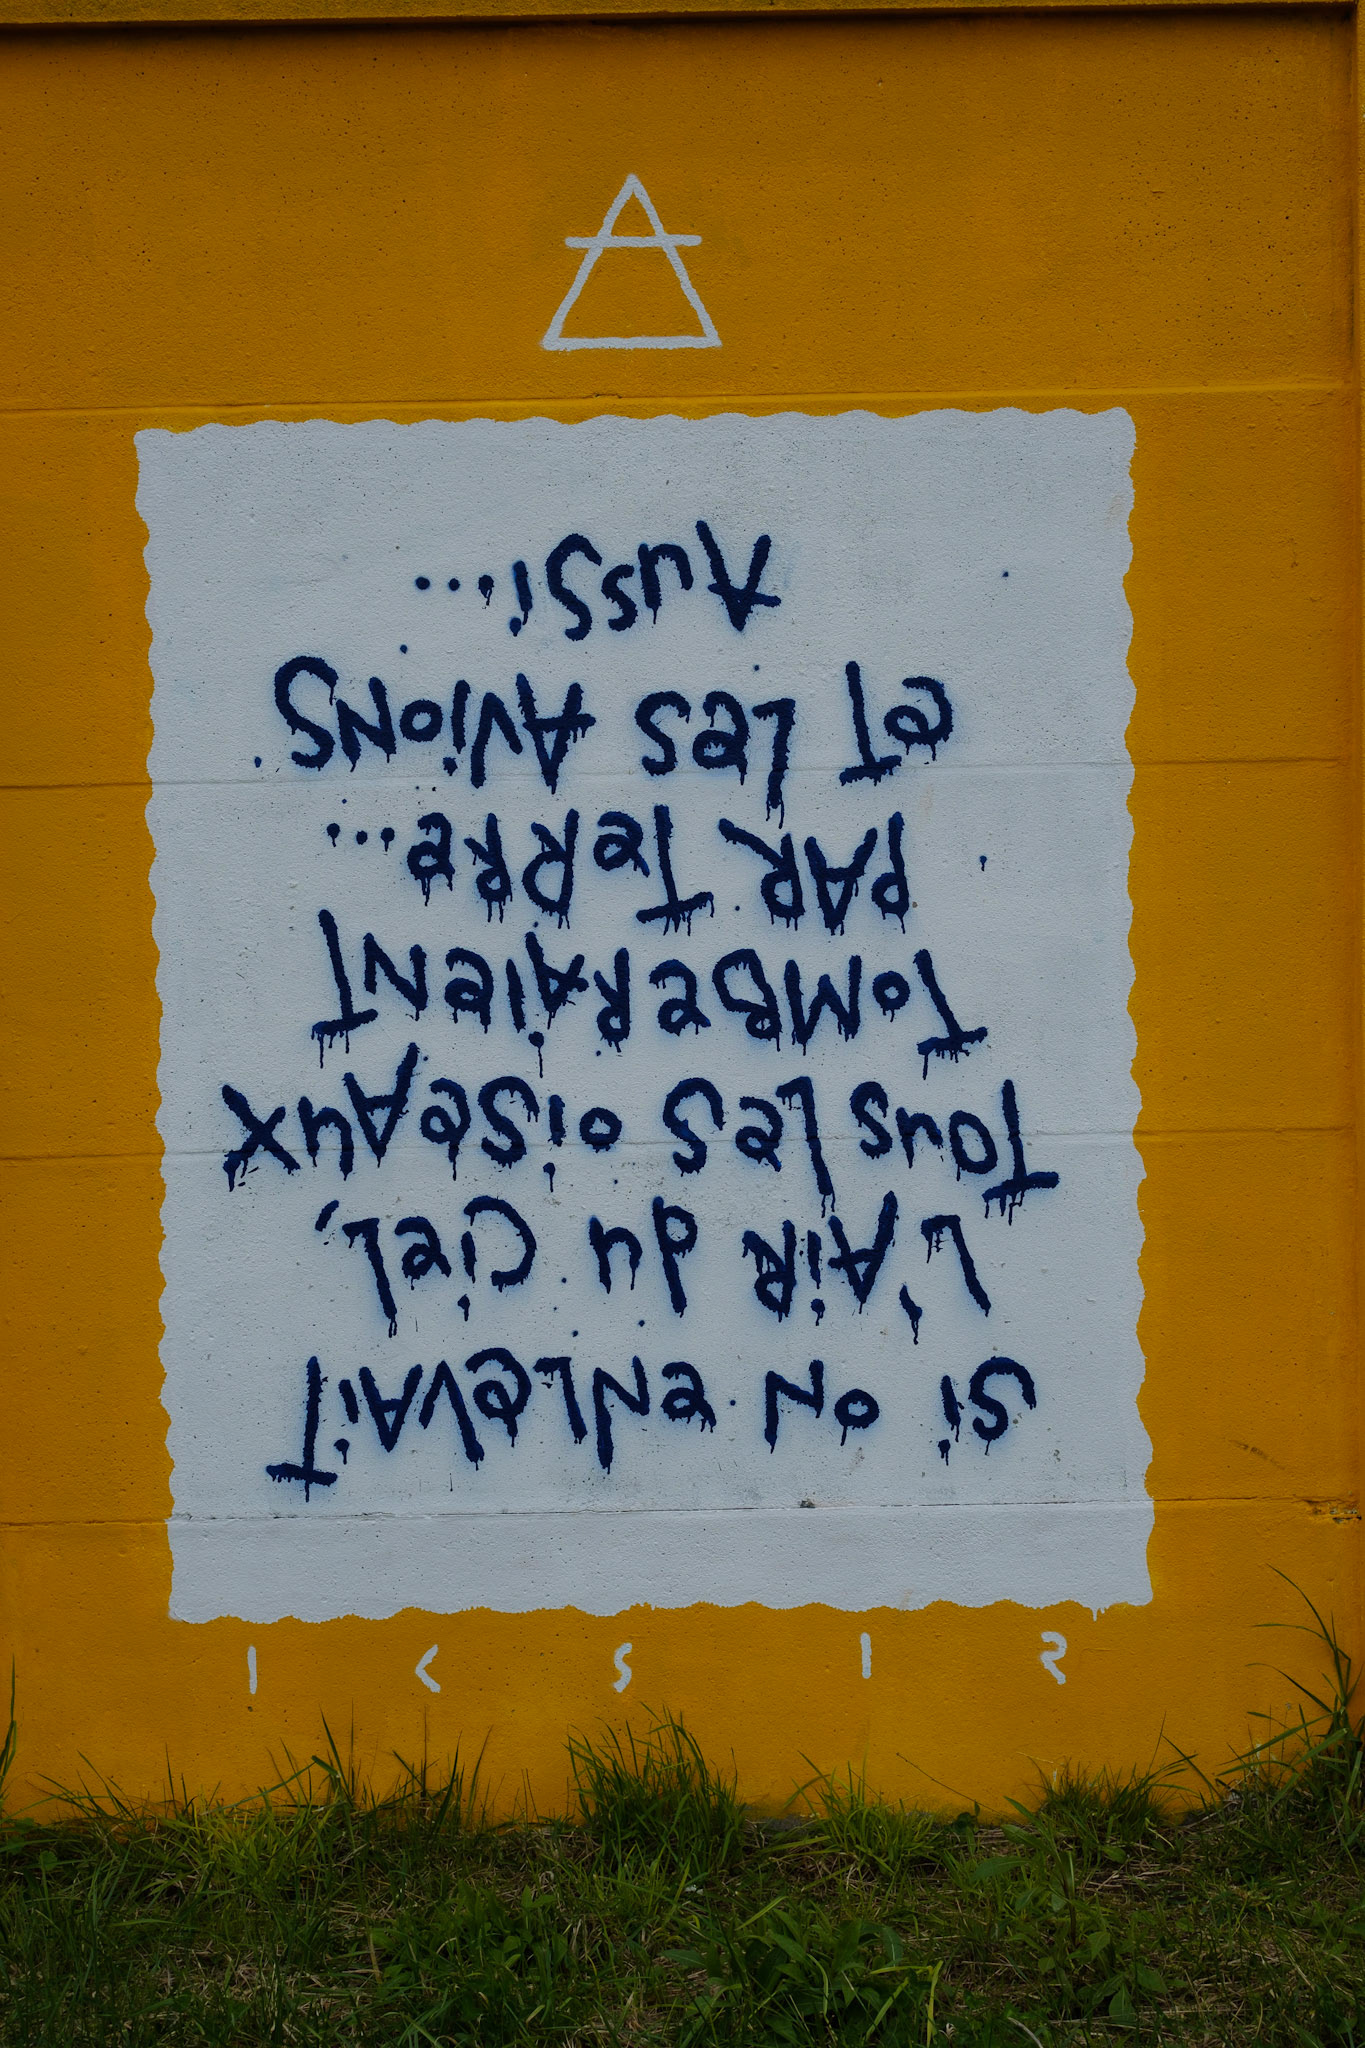 Si on enlevait
l'air du ciel,
Tous les oiseaux
Tomberaient
par terre...
et les avions
Aussi...
I < S I 2